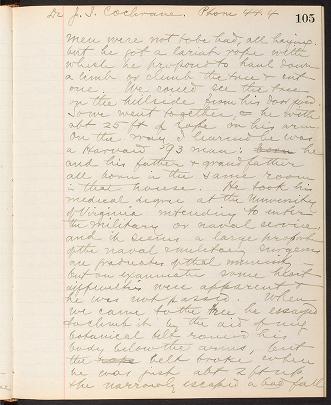 Dr J. I. Cochrane. Phone 44.4
105
men were not to be had, all haying.
but he got a lariat rope with
which he proposed to haul down
a limb or climb the tree & cut
one. We could see the tree
on the hillside from his door yard.
So we went together, & he with
abt 25 ft of rope on his arm
On the way I learned he was
a Harvard '93 man; he
and his father & grandfather
all born in the same room
in that house. He took his
medical degree at the University
of Virginia intending to enter
the military or naval service,
and it seems a large proportion
of the naval & military surgeons
are graduates of that university
but on examination some heart
were apparent &
he was not passed. When
we came to the tree he
to climb it by the aid of my
botanical belt round his
body below the arms, but
the rope belt broke when
he was just abt 2 ft up,
& he narrowly escaped a bad fall